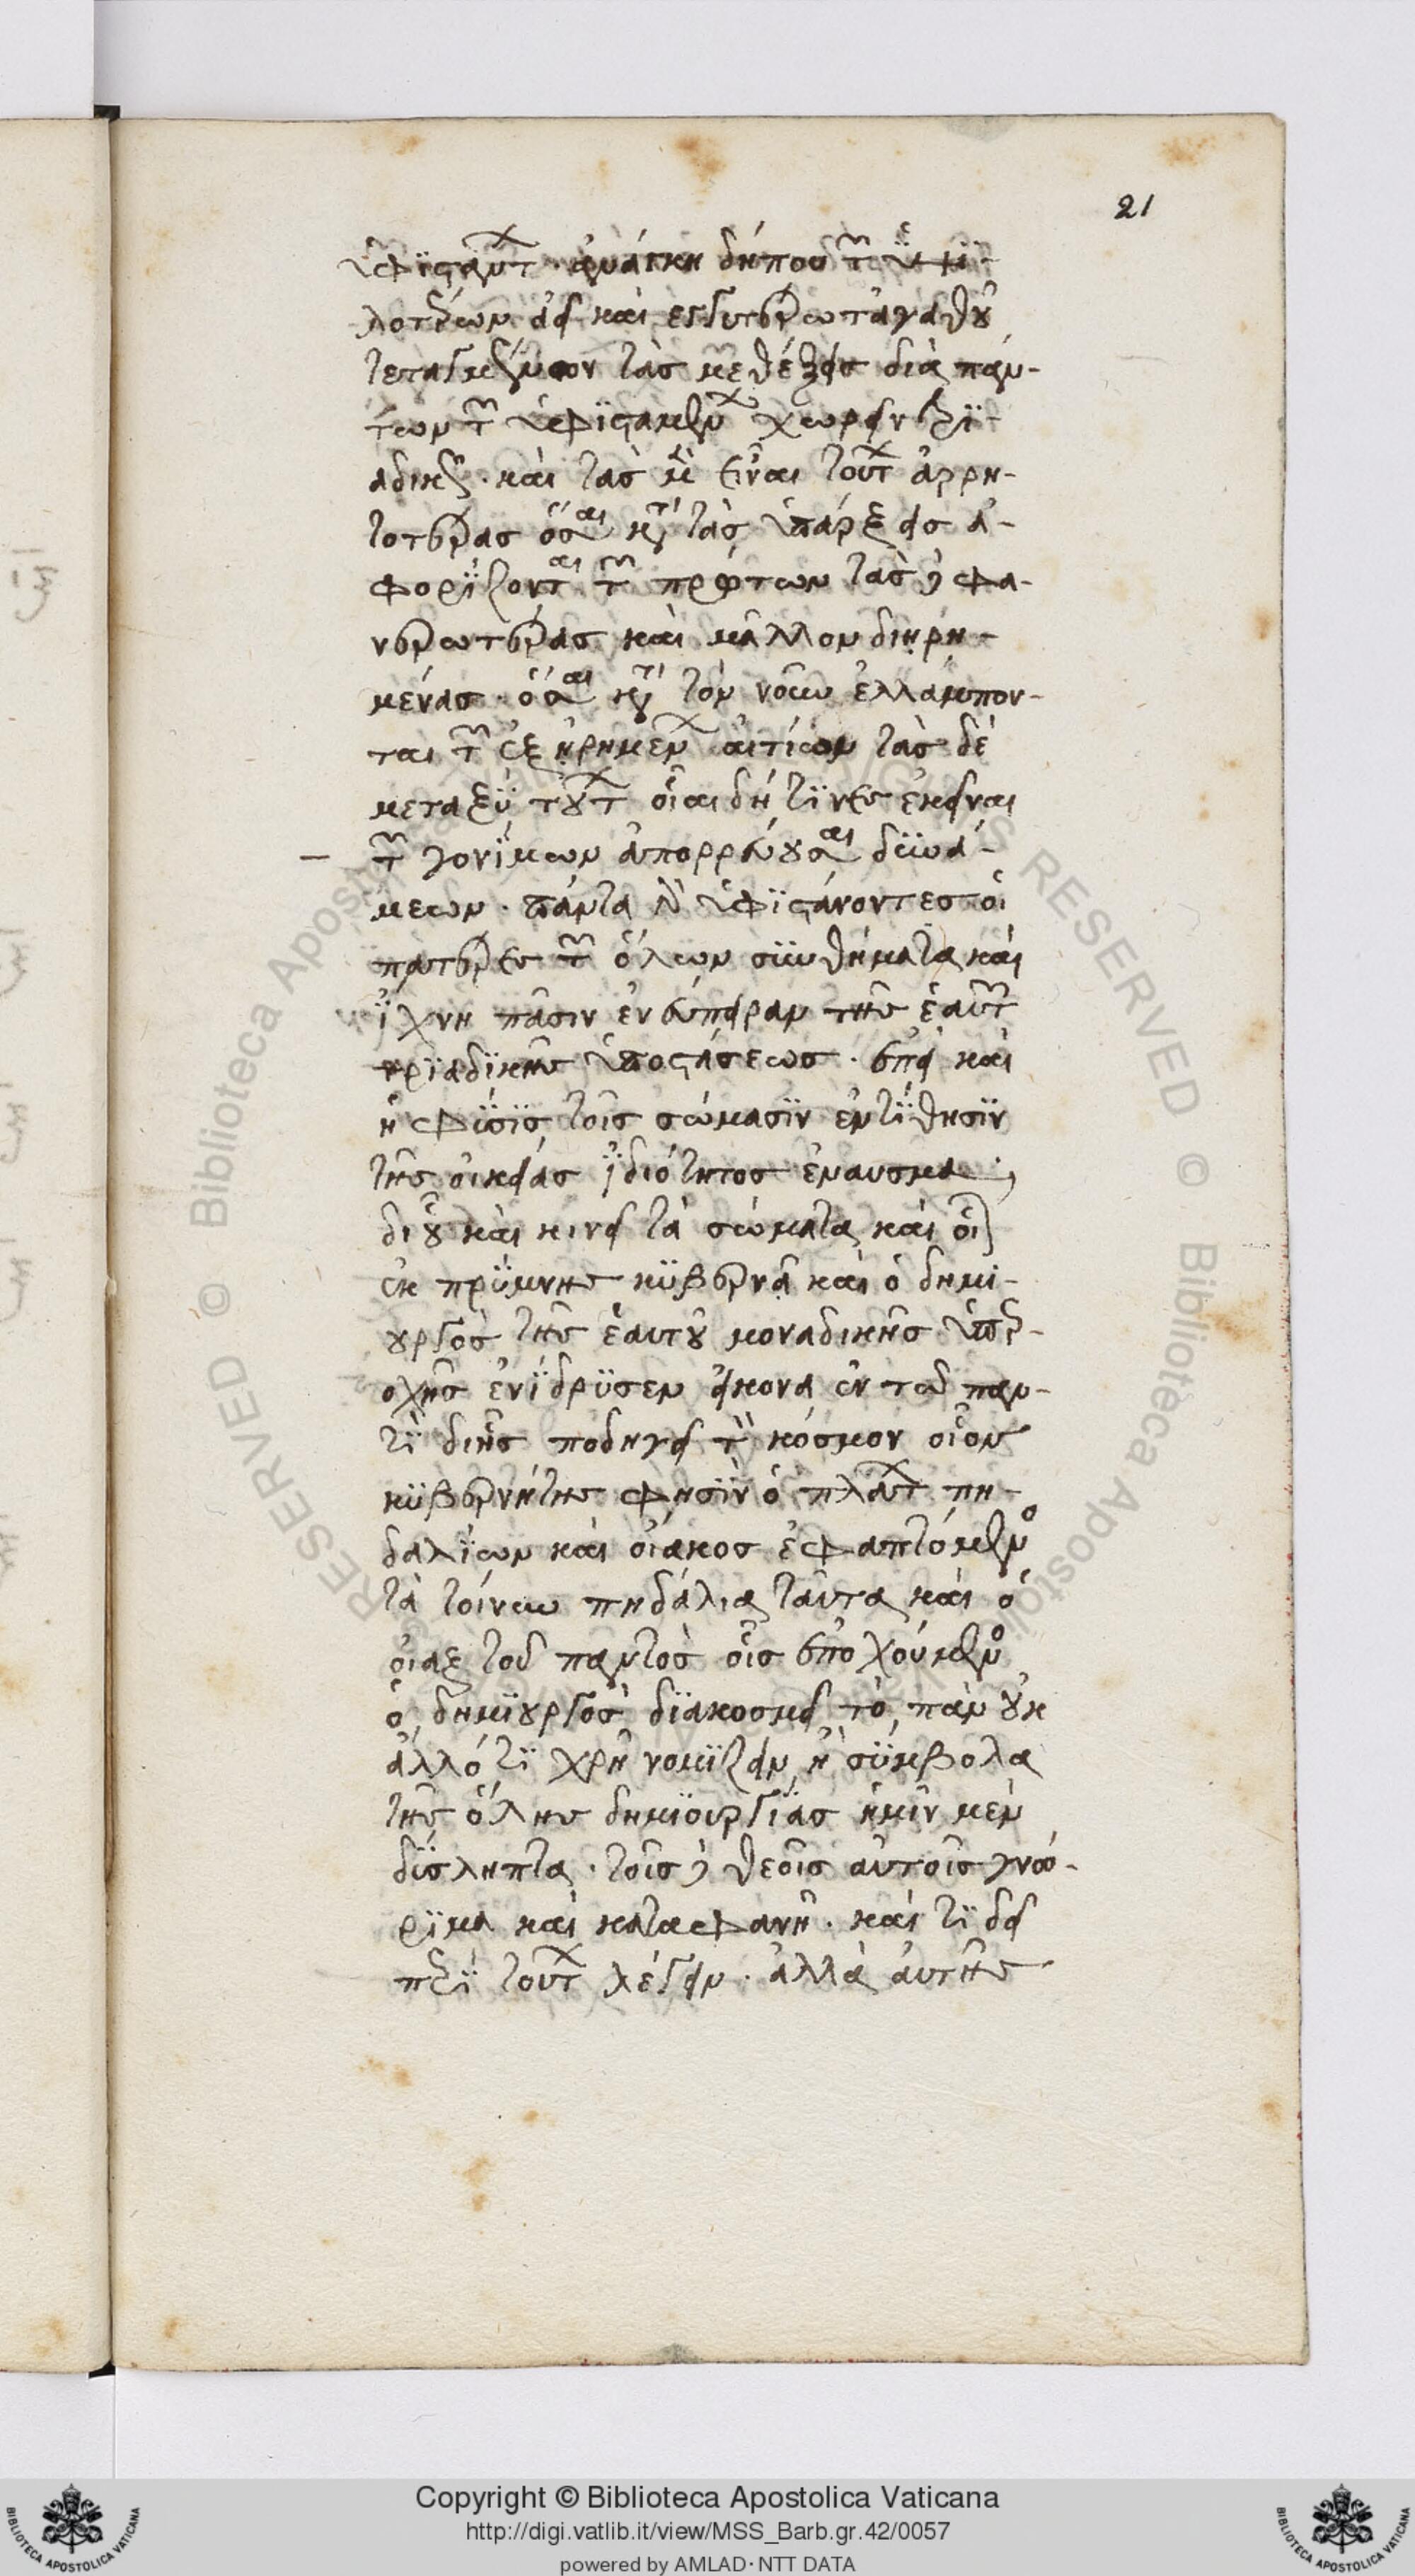 21
ὑφϊσταμένων. ἀνάγκη δήπου τῶν
λοτέρων ἀεὶ καὶ ἐνδοτέρω τἀγαθοῦ
τεταγμένων τὰς μεθέξεις διὰ πάν-
των τῶν ὑφϊσταμένων χωρεῖν τρϊ-
αδικῶς. καὶ τὰς μὲν εἶναι τούτων ἀρρη-
τοτέρας ὅσαι κατὰ τὰς ὑπάρξεις ἀ-
φορϊζονται τῶν πρώτων τὰς δὲ φα-
νερωτέρας καὶ μᾶλλον διῃρη-
μένας. ὅσαι κατὰ τὸν νοῦν ἐλλάμπον-
ται τῶν ἐξῃρημένων αἰτίων τὰς δὲ
μεταξϋ τούτων οἷαι δή τϊνες ἐκεῖναι
τῶν γονϊμων ἀπορρέουσαι δϋνά-
μεων. πάντα γὰρ ὑφϊστάνοντες οἱ
πατέρες τῶν ὅλων σϋνθήματα καὶ
ἴχνη πᾶσιν ἐνέσπειραν τῆς ἑαυτῶν
τρϊαδϊκῆς ὑποστάσεως. ἐπεὶ καὶ
ἡ φϋσϊς τοῖς σώμασϊν ἐντϊθησϊν
τῆς οἰκείας ἰδιότητος ἔναυσμα,
δι οὗ καὶ κινεῖ τὰ σώματα καὶ οἷ
ἐκ πρϋμνης κϋβερνᾷ καὶ ὁ δημι-
ουργὸς τῆς ἑαυτοῦ μοναδικῆς ὑπερ-
οχῆς ἐνϊδρϋσεν εἰκόνα ἐν τῷ παν-
τϊ δι ἧς ποδηγεῖ τὸν κόσμον οἷον
κϋβερνήτης φησϊν ὁ πλάτων πη-
δαλϊων καὶ οἴακος ἐφαπτόμενος
τὰ τοίνυν πηδάλια ταῦτα καὶ ὁ
οἴαξ τοῦ παντὸς οἷς ἐποχούμενος
ὁ δημϊουργὸς δϊακοσμεῖ τὸ πᾶν οὐκ
ἄλλό τϊ χρὴ νομϊζειν ἢ σϋμβολα
τῆς ὅλης δημϊουργϊας ἡμῖν μὲν
δϋσληπτα. τοῖς δὲ θεοῖς αὐτοῖς γνώ-
ρϊμα καὶ καταφανῆ. καὶ τϊ δεῖ
περϊ τούτων λέγειν. ἀλλὰ αὐτῆς
Copyright © Biblioteca Apostolica Vaticana
http://digi.vatlib.it/view/MSS_Barb.gr.42/0057
powered by AMLAD·NTT DATA